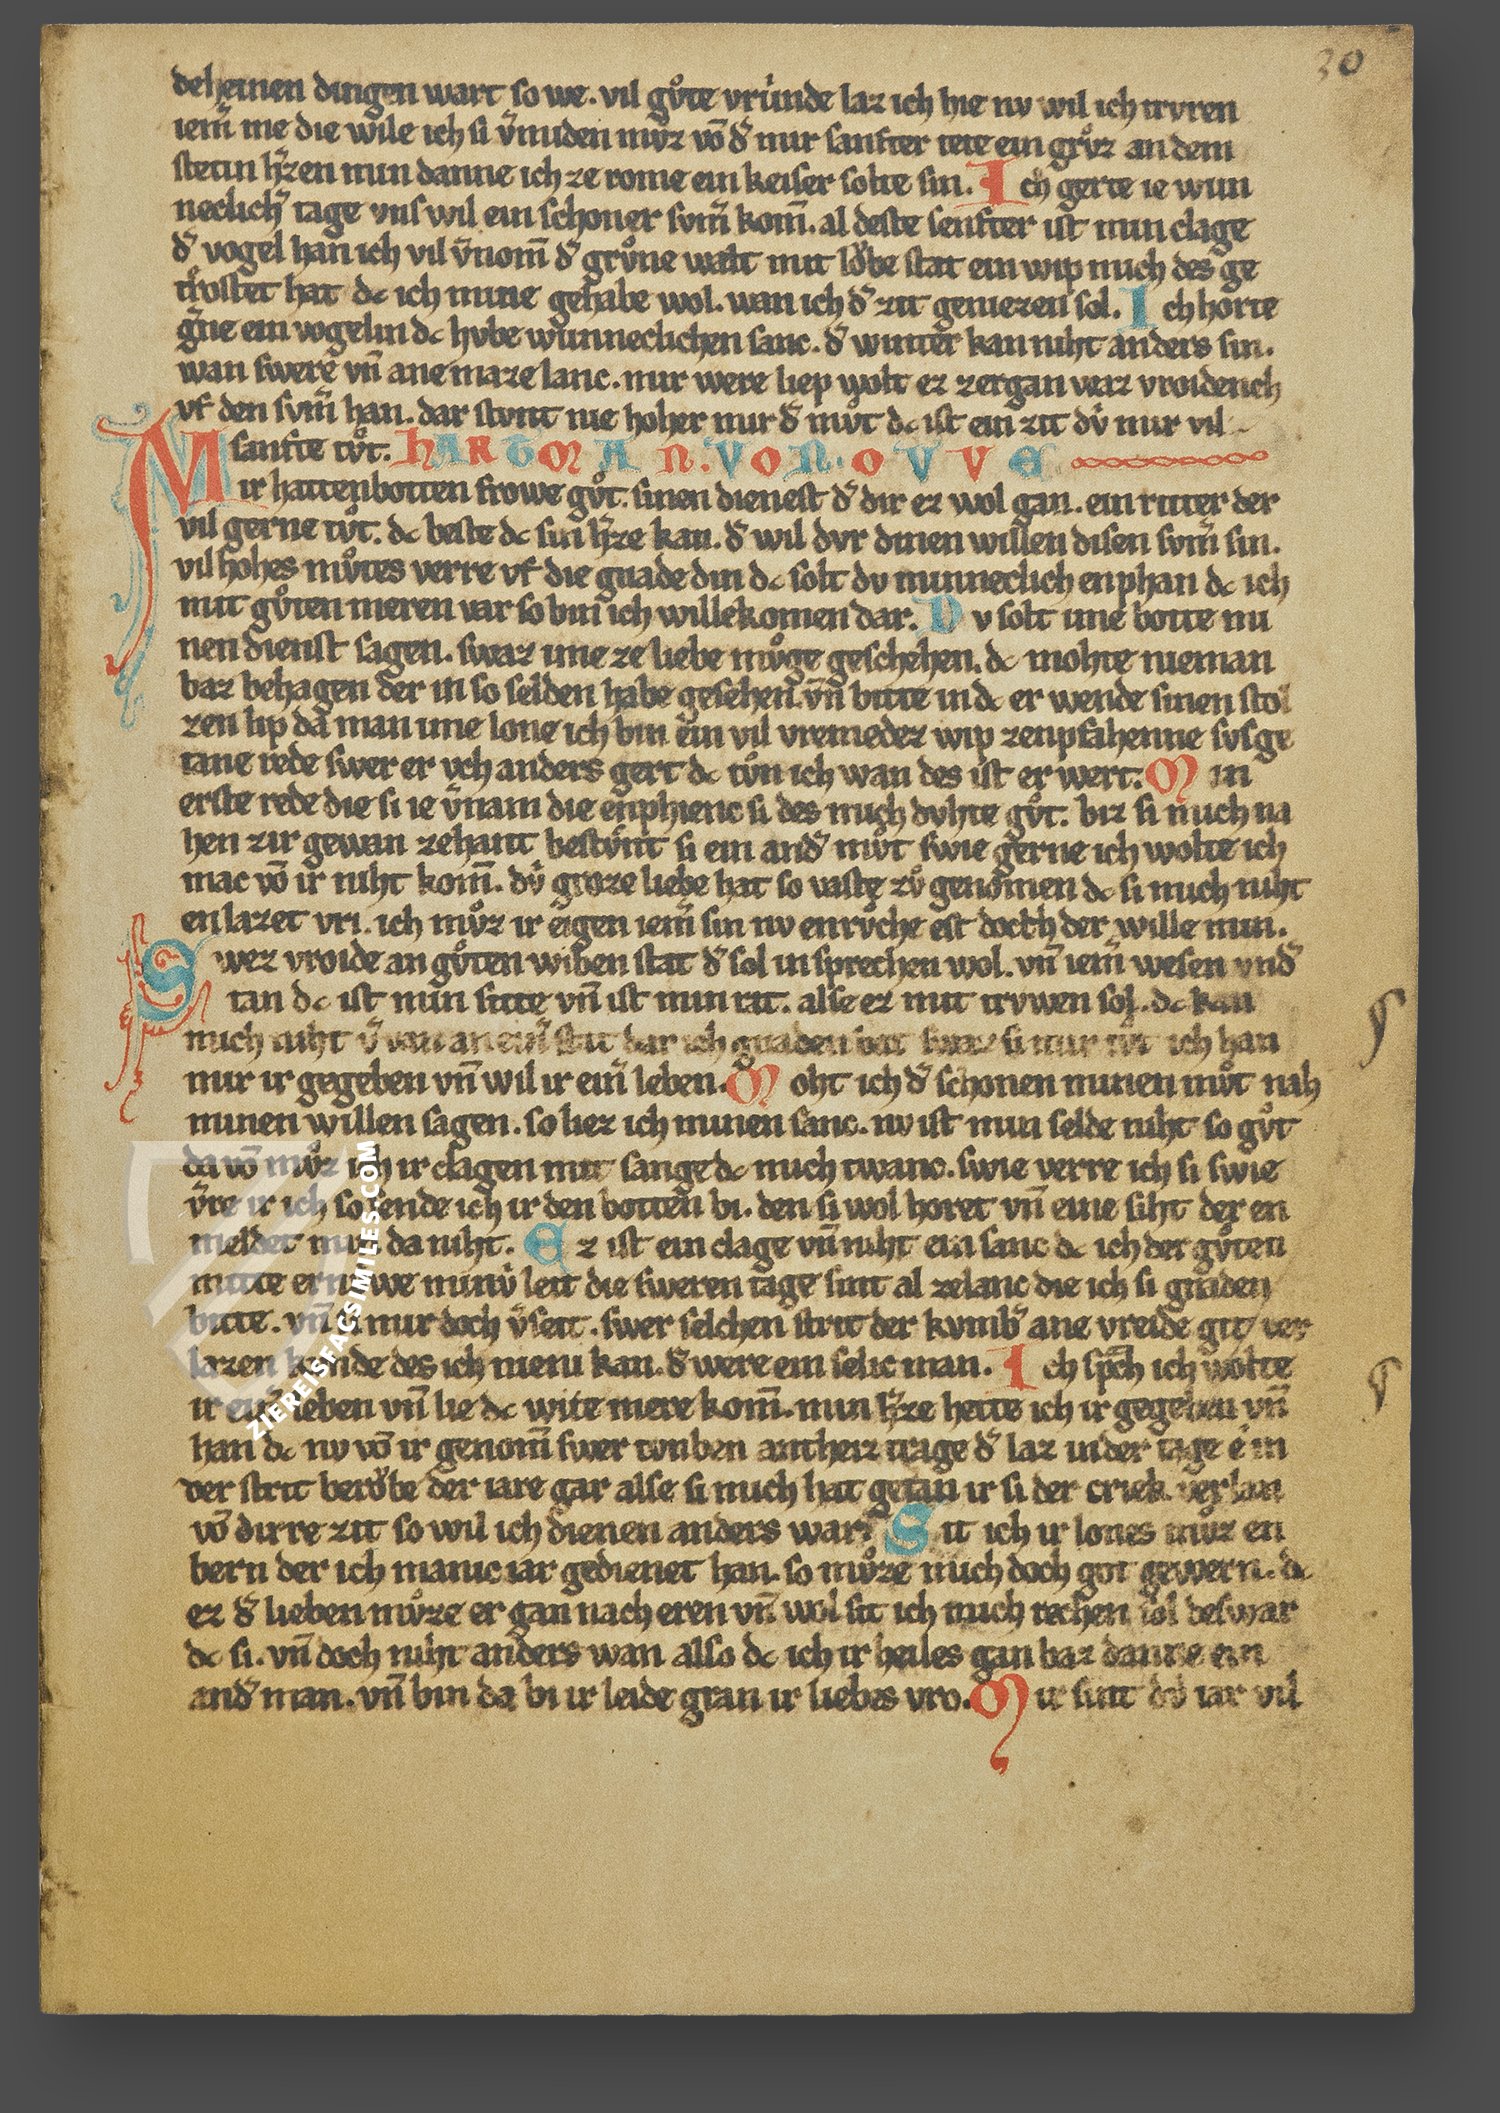 30
deheinen dingen wart so we. vil gůte vrúnde laz ich hie nv wil ich trvren
iem̄ me die wile ich si v̄miden mv̊z vō d̄ mir sanfter tete ein grůz an dem
stetin h̄zen min danne ich ze rome ein keiser solte sin. Ich gerte ie wun
neclich̄ tage vns wil ein schoner svm̄ kom̄. al deste senfter ist min clage
d̄ vogel han ich vil v̄nom̄ d̄ grůne walt mit lǒbe stat ein wip mich des ge
trǒstet hat dc ich mine gehabe wol. wan ich d̄ zit geniezen sol. Ich horte
ḡne ein vogelin dc hvbe wunneclichen sanc. d̄ winter kan niht anders sin.
wan swere vn̄ ane maze lanc. mir were liep wolt ez zergan waz vroiden ich
vf den svm̄ han. dar stvnt nie hoher mir d̄ mv̊t dc ist ein zit dv́ mir vil
sanfte tv̊t. HARTMAN. VON. OVVE
Mir hattenbotten frowe gůt. sinen dienest d̄ dir ez wol gan. ein ritter der
vil gerne tůt. dc beste dc sin h̄ze kan. d̄ wil dvr dinen willen disen svm̄ sin.
vil hohes mv̊tes verre vf die gnade din dc solt dv minneclich enphan dc ich
mit gůten meren var so bin ich willekomen dar. Dv solt ime botte mi
nen dienst sagen. swaz ime ze liebe mv̊ge geschehen. dc mohte nieman
baz behagen der in so selden habe gesehen. vn̄ bitte in dc er wende sinen stol
zen lip da man ime lone ich bin ein vil vremedez wip zenpfahenne svsge
tane rede swer er vch anders gert dc tůn ich wan des ist er wert. Min
erste rede die si ie v̄nam die enphienc si des mich dvhte gůt. biz si mich na
hen zir gewan zehant bestv̊nt si ein and̄ mv̊t swie gerne ich wolte ich
mac vō ir niht kom̄. dv́ groze liebe hat so vaste zů genomen dc si mich niht
en lazet vri. ich mv̊z ir eigen iem̄ sin nv enrvche est doch der wille min.
Swez vroide an gůten wiben stat d̄ sol in sprechen wol. vn̄ iem̄ wesen vnd̄
tan dc ist min sitte vn̄ ist min rat. alse ez mit trvwen sol. dc kan
mich niht v̄van an ein̄ stat dar ich gnaden bat swaz si mir tůt ich han
mir ir gegeben vn̄ wil ir ein̄ leben. Moht ich d̄ schonen minen mv̊t nah
minen willen sagen. so liez ich minen sanc. nv ist min selde niht so gůt
da vō mv̊z ich ir clagen mit sange dc mich twanc. swie verre ich si swie
v̄re ir ich so sende ich ir den botten bi. den si wol horet vn̄ eine siht der en
meldet min da niht. Ez ist ein clage vn̄ niht ein sanc dc ich der gůten
mitte erniwe minv́ leit die sweren tage sint al zelanc die ich si gnaden
bitte. vn̄ si mir doch v̄seit. swer selchen strit der kvmb̄ ane vreide git ver
lazen kvnde des ich nieni kan. d̄ were ein selic man. Ich sp̄ch ich wolte
ir ein̄ leben vn̄ lie dc wite mere kom̄. min h̄ze hette ich ir gegeben vn̄
han dc nv vō ir genom̄ swer tvnben antheiz trage d̄ laz in der tage e in
der strit berǒbe der iare gar alse si mich hat getan ir si der criek verlan
vō dirre zit so wil ich dienen anders war. Sit ich ir lones mv̊z en
bern der ich manic iar gedienet han. so mv̊ze mich doch got gewern. dc
ez d̄ lieben mv̊ze er gan nach eren vn̄ wol sit ich mich rechen sol deswar
dc si. vn̄ doch niht anders wan also dc ich ir heiles gan baz danne ein
and̄ man. vn̄ bin da bi ir leide gran ir liebes vro. Mir sint dv́ iar vil
ZIEREISFACSIMILES.COM